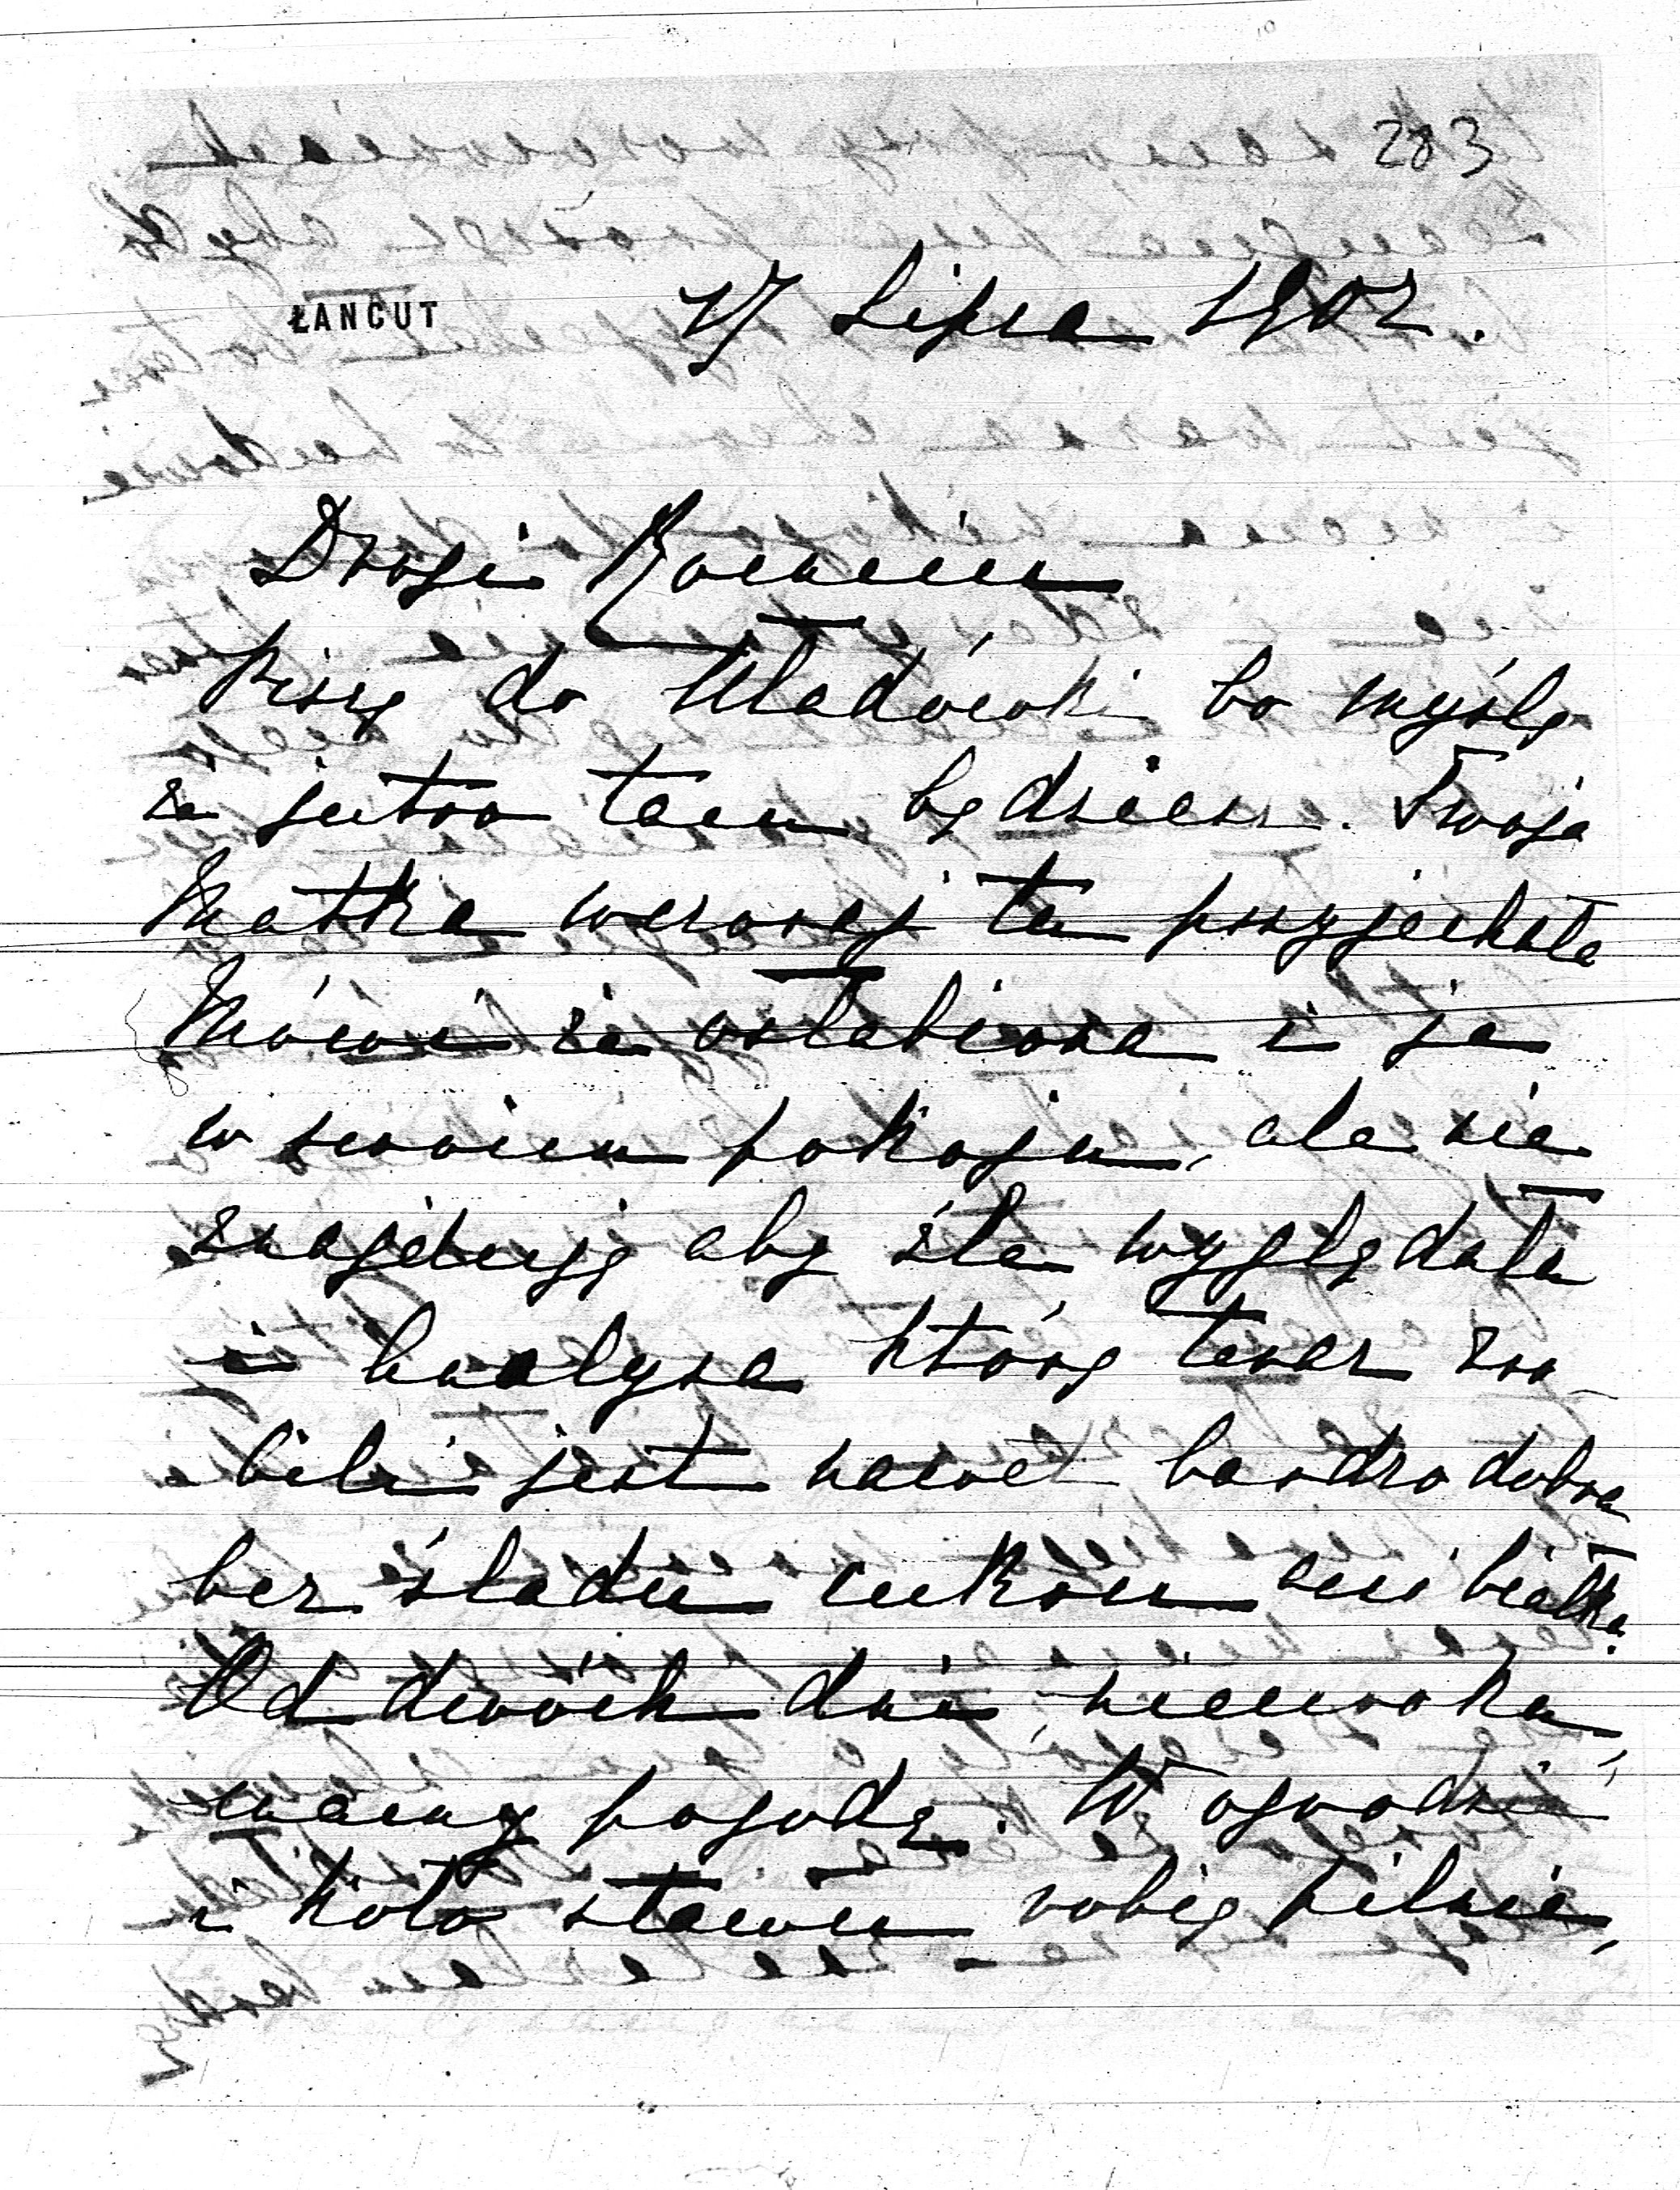 283
ŁAŃCUT 17 Lipca 1902.
Drogi Romciu
Piszę do Uładówki bo myślę
że jutro tam będziesz. Twoja
Matka wczoraj tu przyjechała
Mówi że osłabiona i je
w swoim pokoju, ale nie
znajduję aby źle wyglądała
i analyza którą teraz zro
bili jest nawet bardzo dobra
bez śladu cukru ani białka.
Od dwóch dni
mamy pogodę. W ogrodzie
i koło stawu robię pilnie,